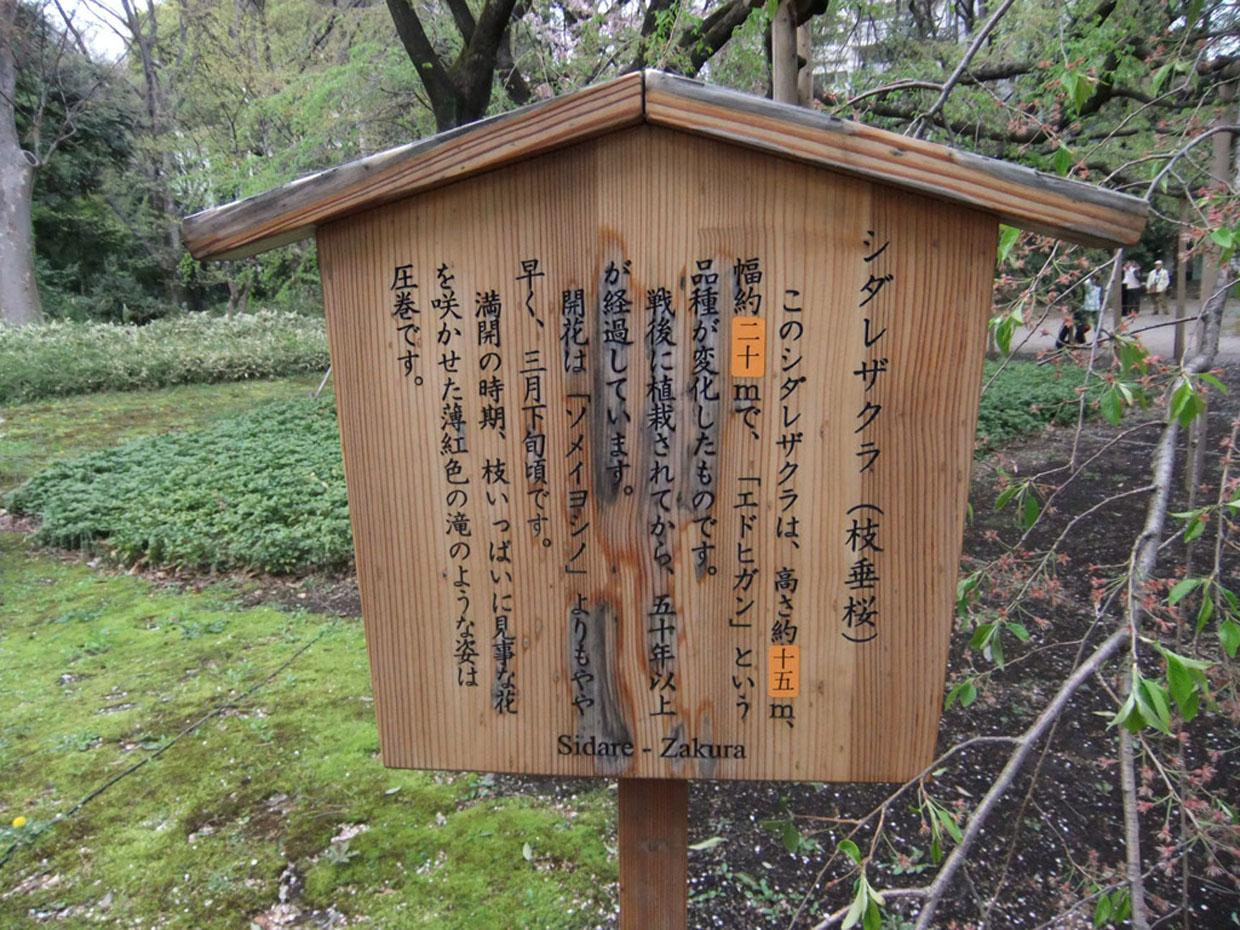 シダレザクラ（枝垂桜）
このシダレザクラは、高さ約十五m、
幅約二十mで、「エドヒガン」という
品種が変化したものです。
戦後に植栽されてから、五十年以上
が経過しています。
開花は「ソメイヨシノ」よりもやや
早く、三月下旬頃です。
満開の時期、枝いっぱいに見事な花
を咲かせた薄紅色の滝のような姿は
圧巻です。
Sidare - Zakura